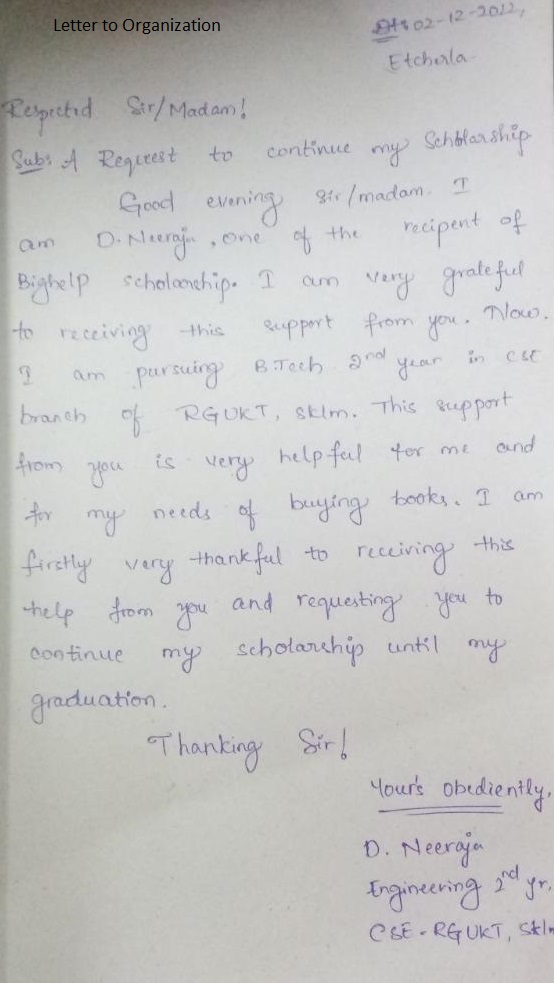 Letter to Organization
Dt: 02-12-2022,
Etcherla
Respected Sir/Madam!
Sub: A Request to continue my Scholarship
Good evening Sir/madam. I
am D. Neeraja, one of the recipent of
Bighelp scholarship. I am very grateful
to receiving this support from you. Now.
I am pursuing B.Tech 2nd year in CSE
branch of RGUKT, sklm. This support
from you is very helpful for me and
for my needs of buying books. I am
firstly very thankful to receiving this
help from you and requesting you to
continue my scholarship until my
graduation.
Thanking Sir!
Your's Obediently,
D. Neeraja
Engineering 2nd yr,
CSE - RGUKT, Sklm